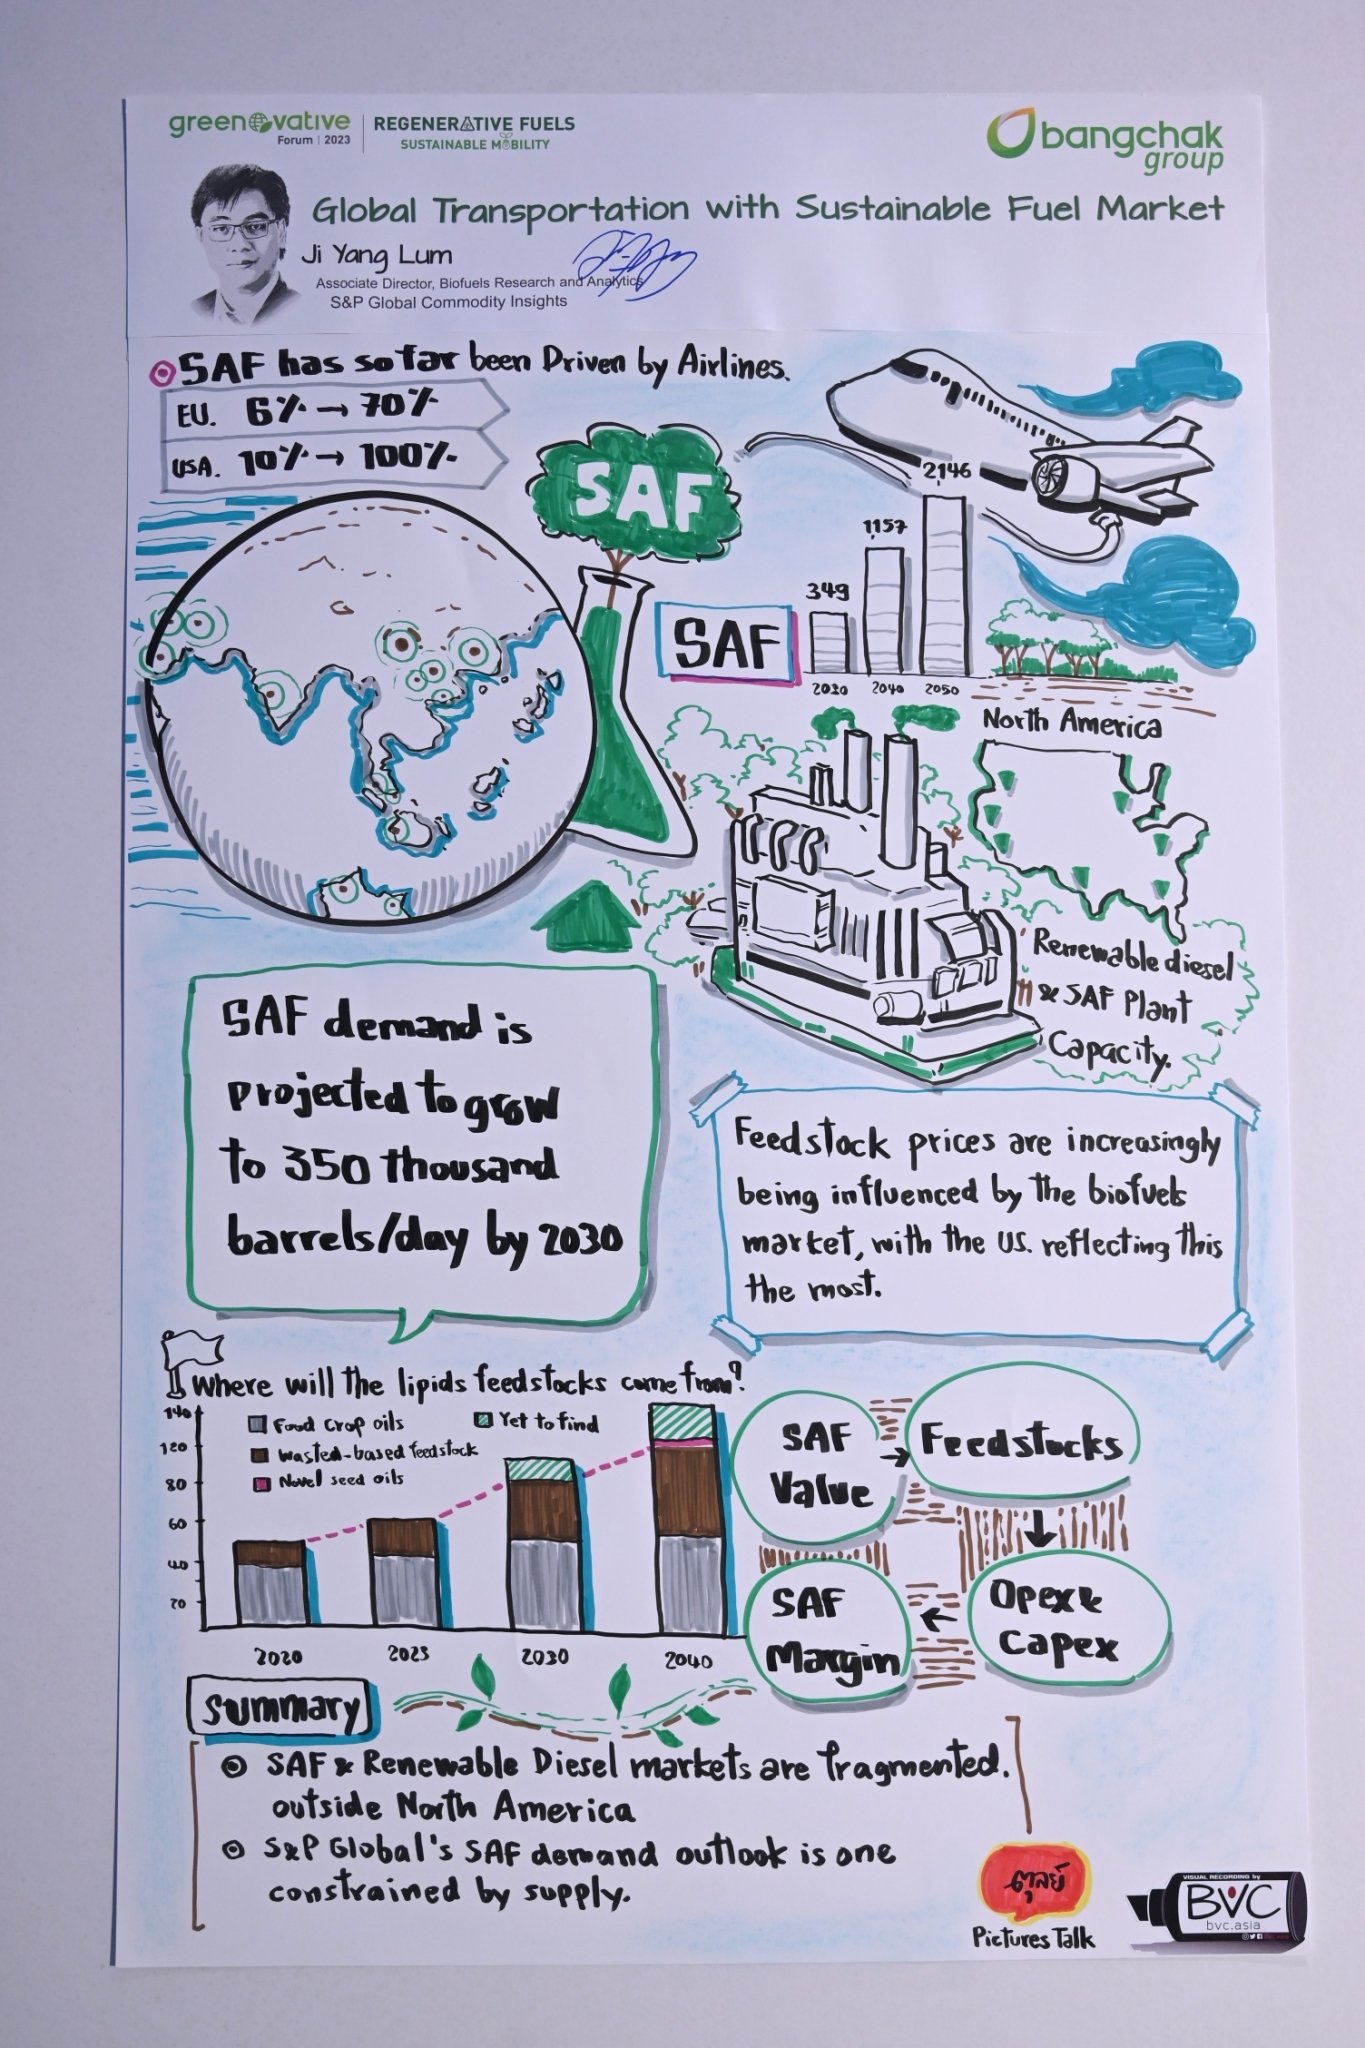 greenovative
Forum | 2023
REGENERATIVE FUELS
SUSTAINABLE MOBILITY
bangchak
group
Global Transportation with Sustainable Fuel Market
Ji Yang Lum
Associate Director, Biofuels Research and Analytics
S&P Global Commodity Insights
SAF has so far been Driven by Airlines.
EU. 6% → 70%
USA. 10% → 100%
SAF
SAF
349
1157
2146
2030
2040
2050
North America
Renewable diesel
& SAF Plant
Capacity.
SAF demand is
projected to grow
to 350 thousand
barrels/day by 2030
Feedstock prices are increasingly
being influenced by the biofuels
market, with the US. reflecting this
the most.
Where will the lipids feedstocks come from?
140
120
80
60
40
20
Food crop oils
Yet to find
Wasted-based feedstock
Novel seed oils
2020
2025
2030
2040
SAF
Value
→
Feedstocks
↓
Opex &
Capex
←
SAF
Margin
Summary
SAF & Renewable Diesel markets are fragmented.
outside North America
S&P Global's SAF demand outlook is one
constrained by supply.
ตุลย์
Pictures Talk
VISUAL RECORDING by
BVC
bvc.asia